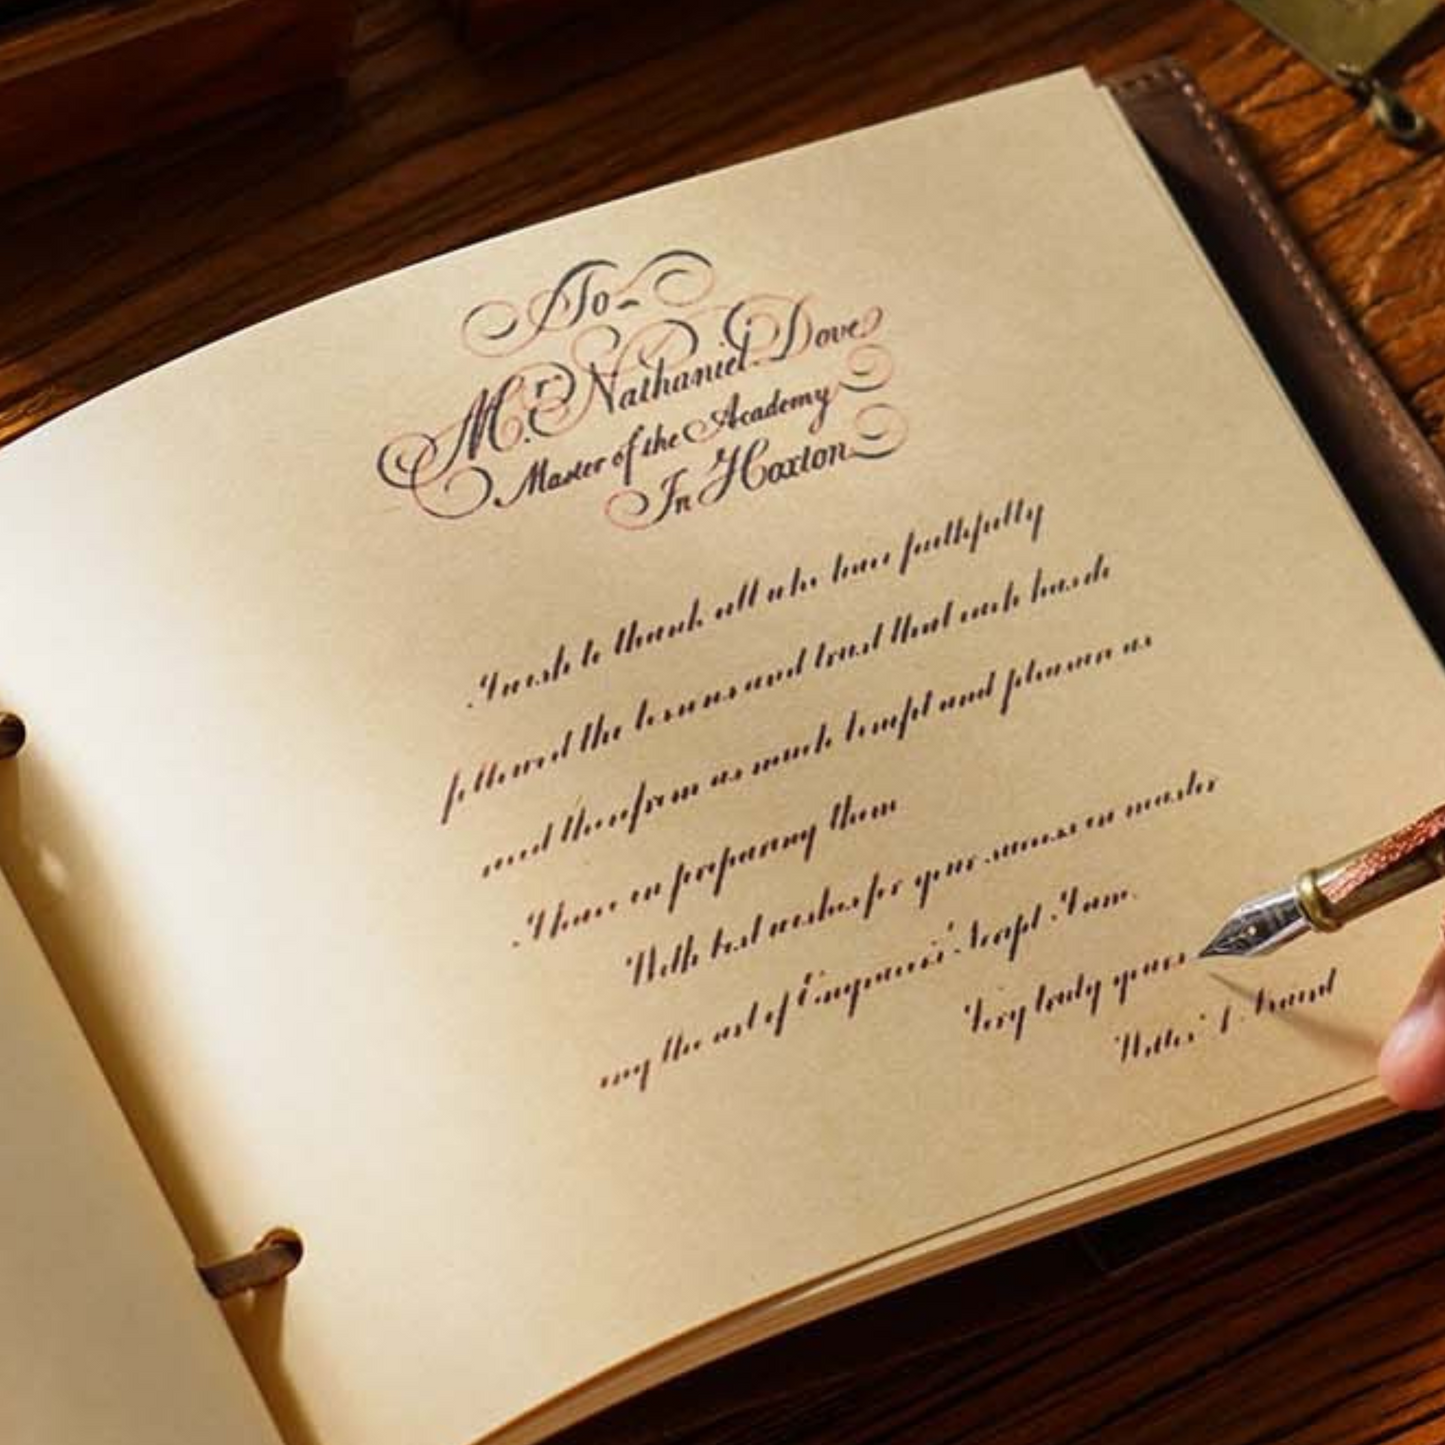 To
Mr. Nathaniel Dove
Master of the Academy
In Hoxton
I wish to thank all who have faithfully
followed the lessons and trust that each has de
rived therefrom as much benefit and pleasure as
I have in preparing them
With best wishes for your success in master
ing the art of Engravers' Script I am.
Very truly yours